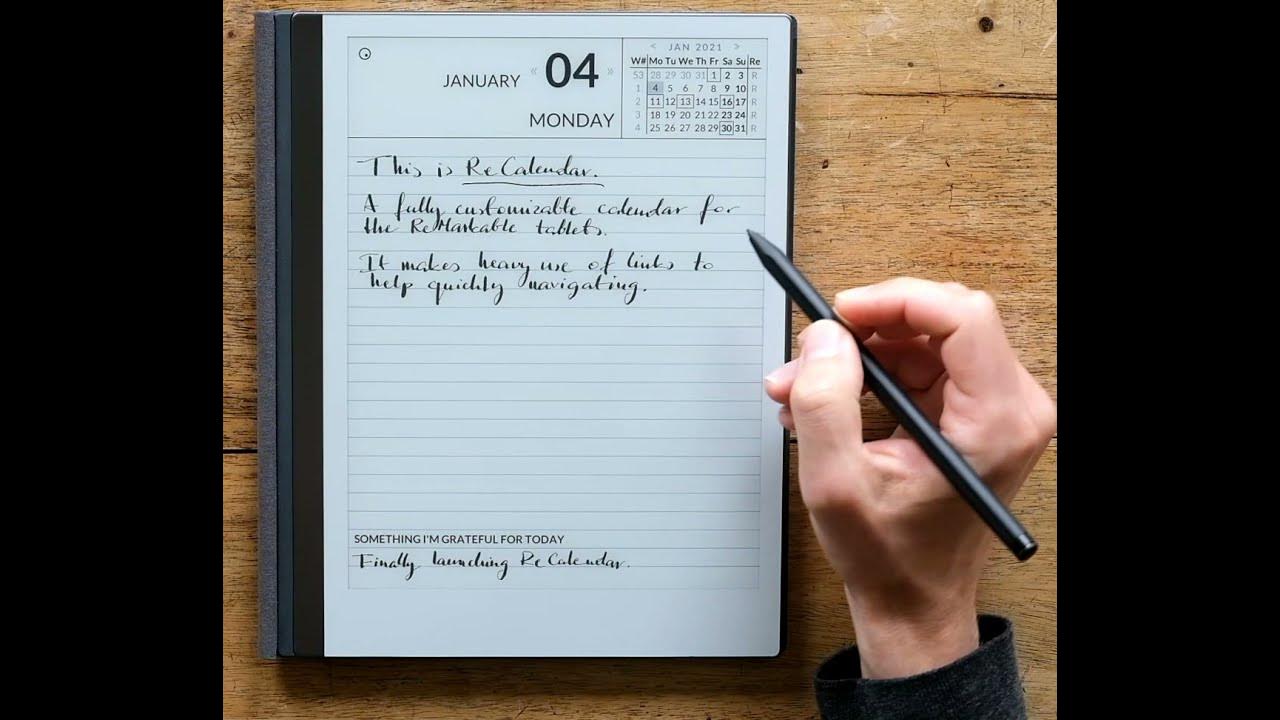 JANUARY « 04 »
MONDAY
< JAN 2021 >
W# Mo Tu We Th Fr Sa Su Re
53 28 29 30 31 1 2 3 R
1 4 5 6 7 8 9 10 R
2 11 12 13 14 15 16 17 R
3 18 19 20 21 22 23 24 R
4 25 26 27 28 29 30 31 R
This is ReCalendar.
A fully customizable calendar for
the ReMarkable tablets.
It makes heavy use of links to
help quickly navigating.
SOMETHING I'M GRATEFUL FOR TODAY
Finally launching ReCalendar.